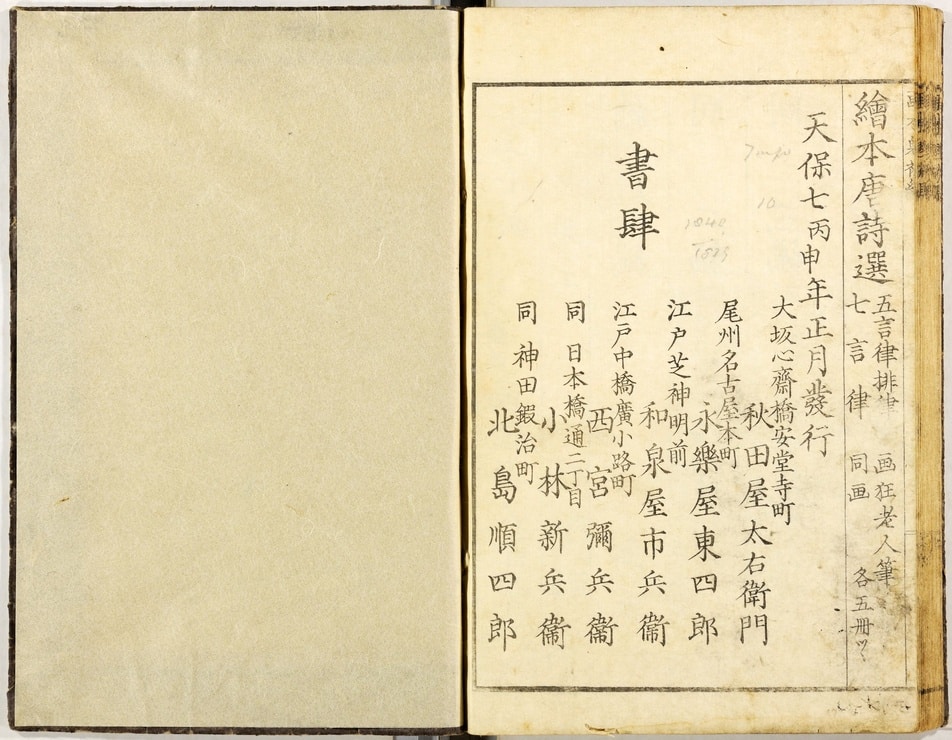 繪本唐詩選
五言律排律 画狂老人筆
七言律 同画 各五冊ツヽ
天保七丙申年正月發行
書肆
大坂心齋橋安堂寺町
秋田屋太右衛門
尾州名古屋本町
永樂屋東四郎
江戸芝神明前
和泉屋市兵衞
江戸中橋廣小路町
西宮彌兵衞
同日本橋通二丁目
小林新兵衞
同神田鍛治町
北島順四郎